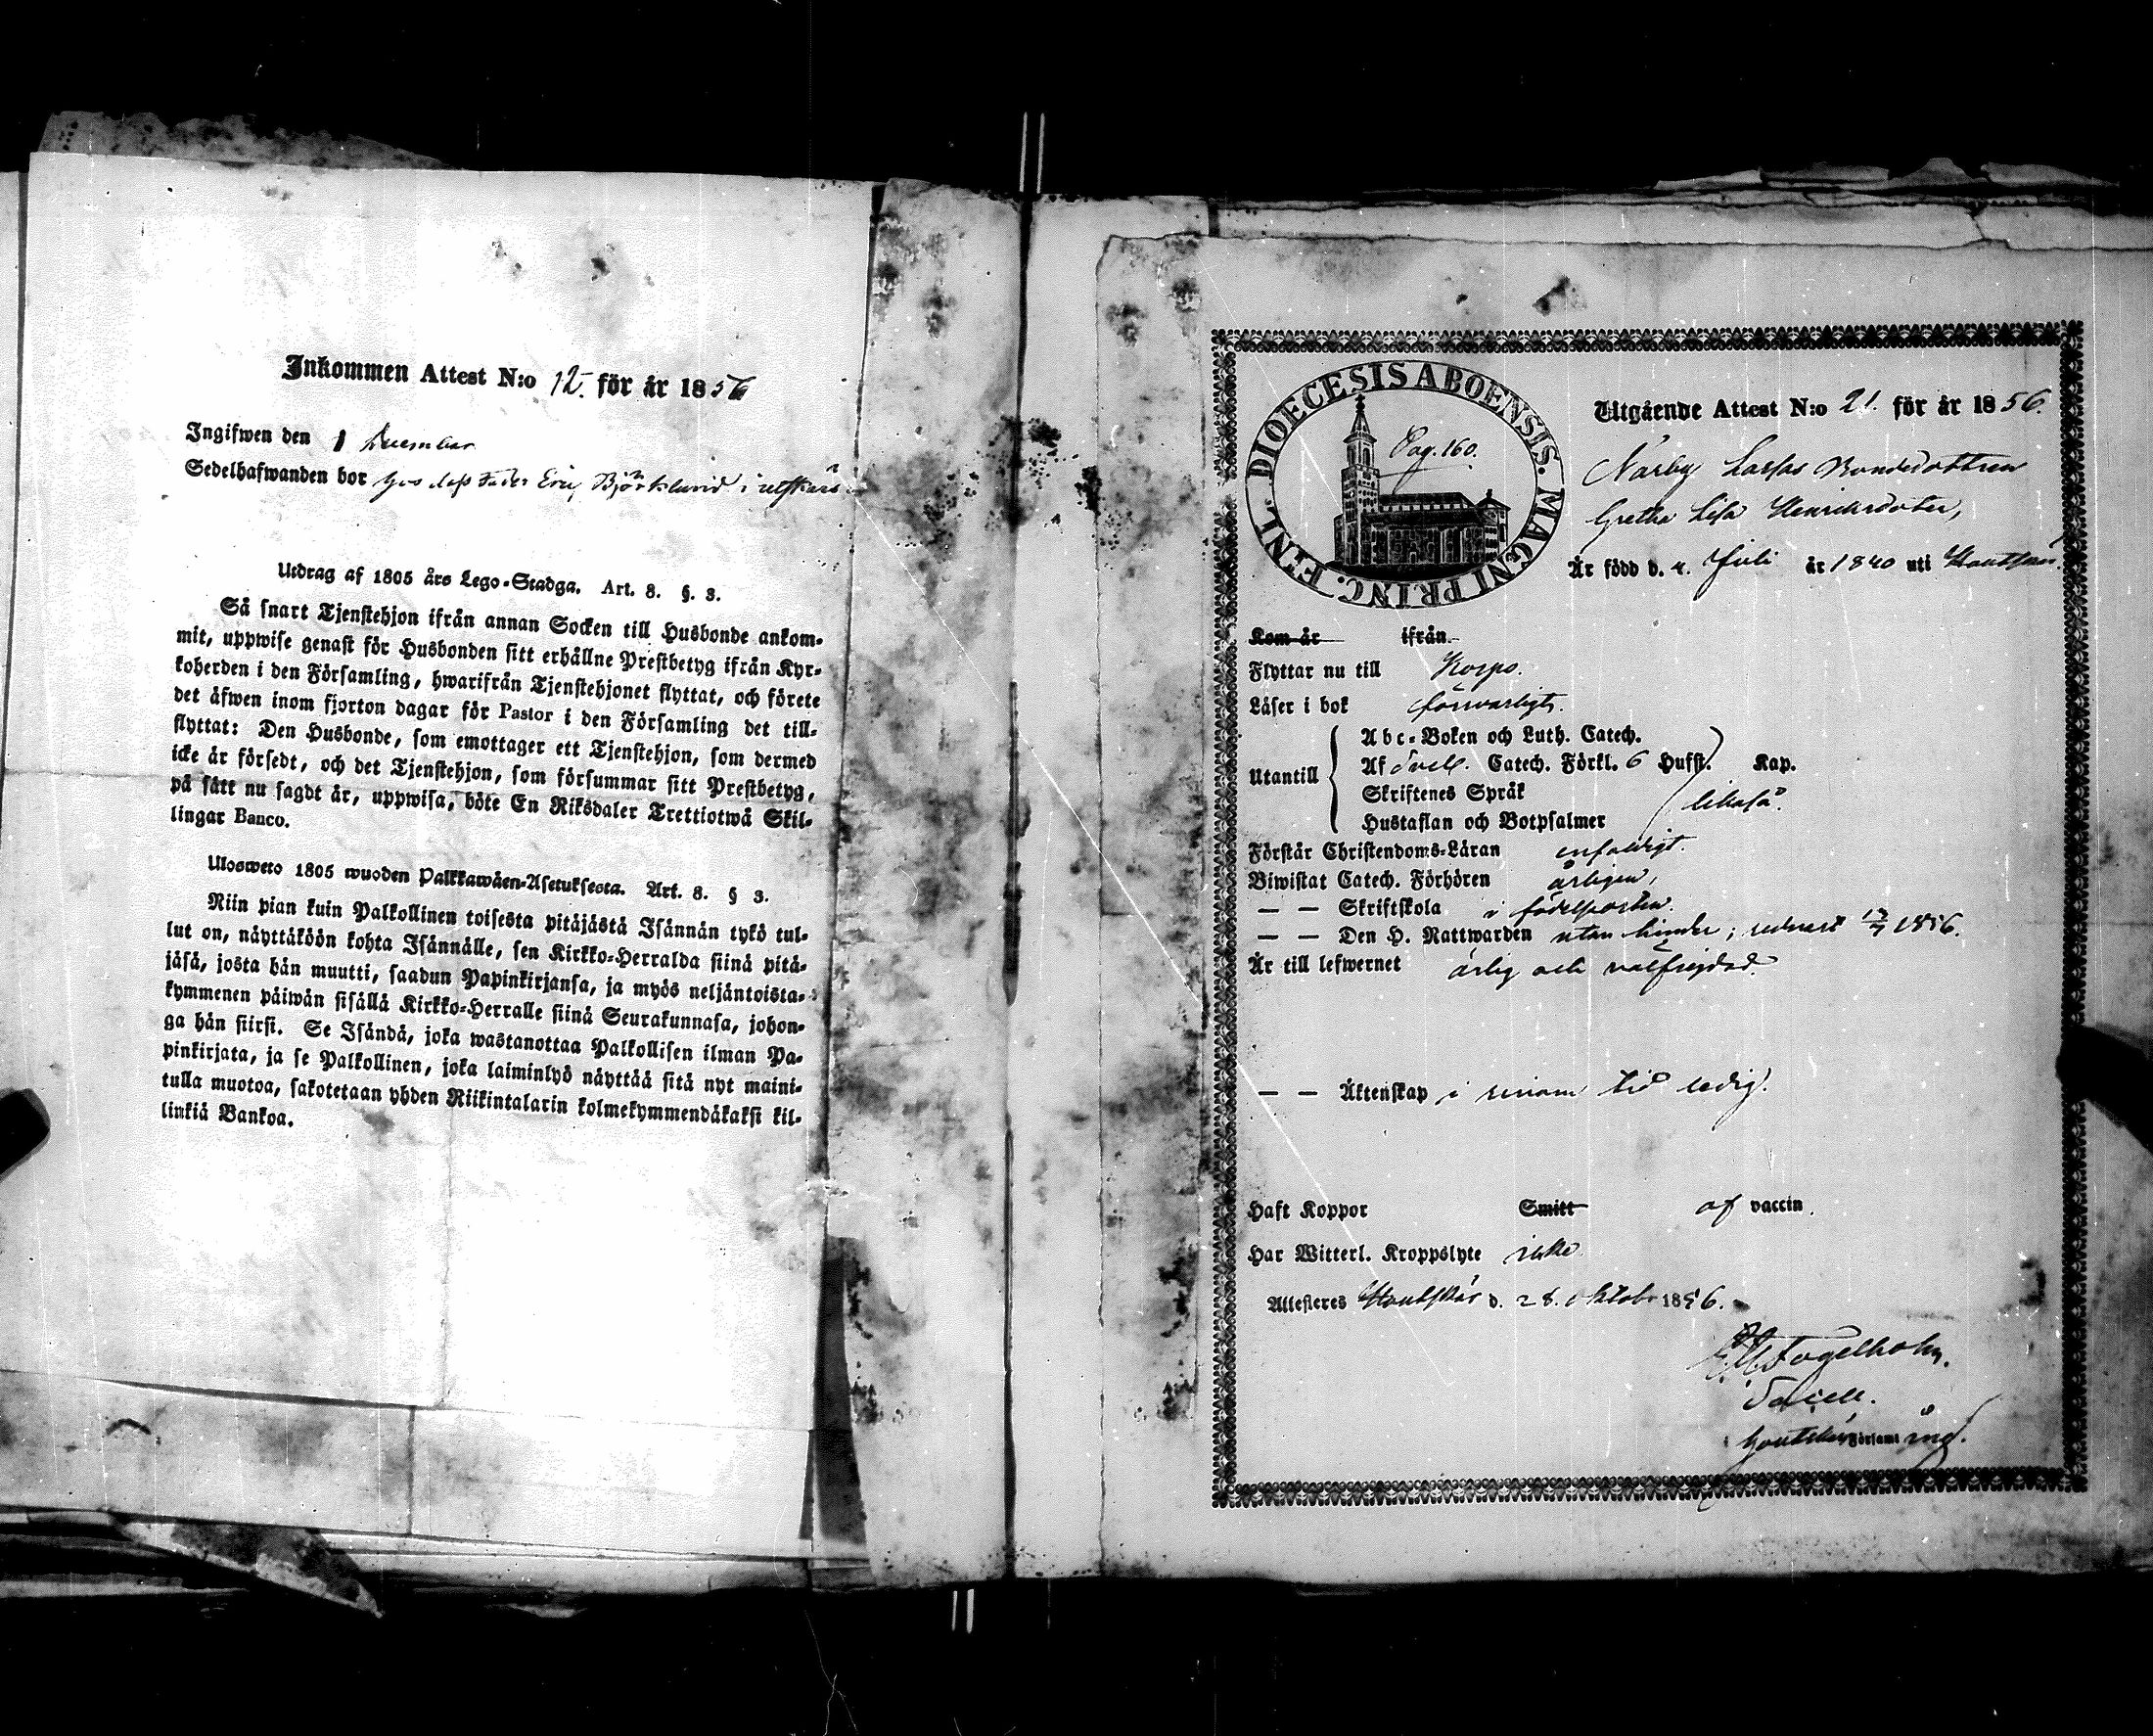 Inkommen Attest N:o 12. för år 1856
Ingifwen den 1 December
Sedelhafwanden bor hos dess Fader Eric Björklund i
Utdrag af 1805 års Lego-Stadga. Art. 8. §. 3.
Så snart Tjenstehjon ifrån annan Socken till Husbonde ankom-
mit, uppwise genast för Husbonden sitt erhållne Prestbetyg ifrån Kyr-
koherden i den Församling, hwarifrån Tjenstehjonet flyttat, och förete
det äfwen inom fjorton dagar för Pastor i den Församling det till-
flyttat: Den Husbonde, som emottager ett Tjenstehjon, som dermed
icke är försedt, och det Tjenstehjon, som försummar sitt Prestbetyg,
på sätt nu sagdt är, uppwisa, böte En Riksdaler Trettiotwå Skil-
lingar Banco.
Ulosweto 1805 wuoden Palkkawäen-Asetuksesta. Art. 8. § 3.
Niin pian kuin Palkollinen toisesta pitäjästä Isännän tykö tul-
lut on, näyttäköön kohta Isännälle, sen Kirkko-Herralda siinä pitä-
jäsä, josta hän muutti, saadun Papinkirjansa, ja myös neljäntoista-
kymmenen päiwän sisällä Kirkko-Herralle siinä Seurakunnasa, johon-
ga hän siirsi. Se Isändä, joka wastanottaa Palkollisen ilman Pa-
pinkirjata, ja se Palkollinen, joka laiminlyö näyttää sitä nyt maini-
tulla muotoa, sakotetaan yhden Riikintalarin kolmekymmendäkaksi kil-
linkiä Bankoa.
DIOECESIS ABOENSIS. MAGNI PRINC. FINL.
Pag. 160.
Utgående Attest N:o 21. för år 1856.
Närby Bondedottren
Gretha Lisa Henriksdoter,
Är född d. 4. Juli år 1840 uti Houtskär
Kom år ifrån
Flyttar nu till Korpo.
Läser i bok försvarligt.
Utantill
Abc-Boken och Luth. Catech.
Af Sveb. Catech. Förkl. 6 Hufst. Kap.
Skriftenes Språk
likaså.
Hustaflan och Botpsalmer
Förstår Christendoms-Läran enfaldigt.
Biwistat Catech. Förhören årligen,
— — Skriftskola i födelseorten.
— — Den H. Nattwarden utan hinder; sednast 1856.
Är till lefwernet ärlig och välfrejdad.
— — Äktenskap i senare tid ledig.
Haft Koppor Smitt af vaccin.
Har Witterl. Kroppslyte icke
Attesteres Houtskär d. 28. Oktober 1856.
Fogelholm.
Sacell.
i Houtskärs Församl.